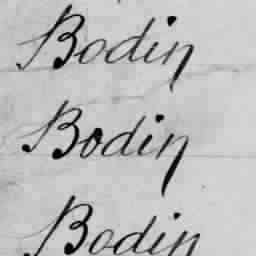 Bodin
Bodin
Bodin